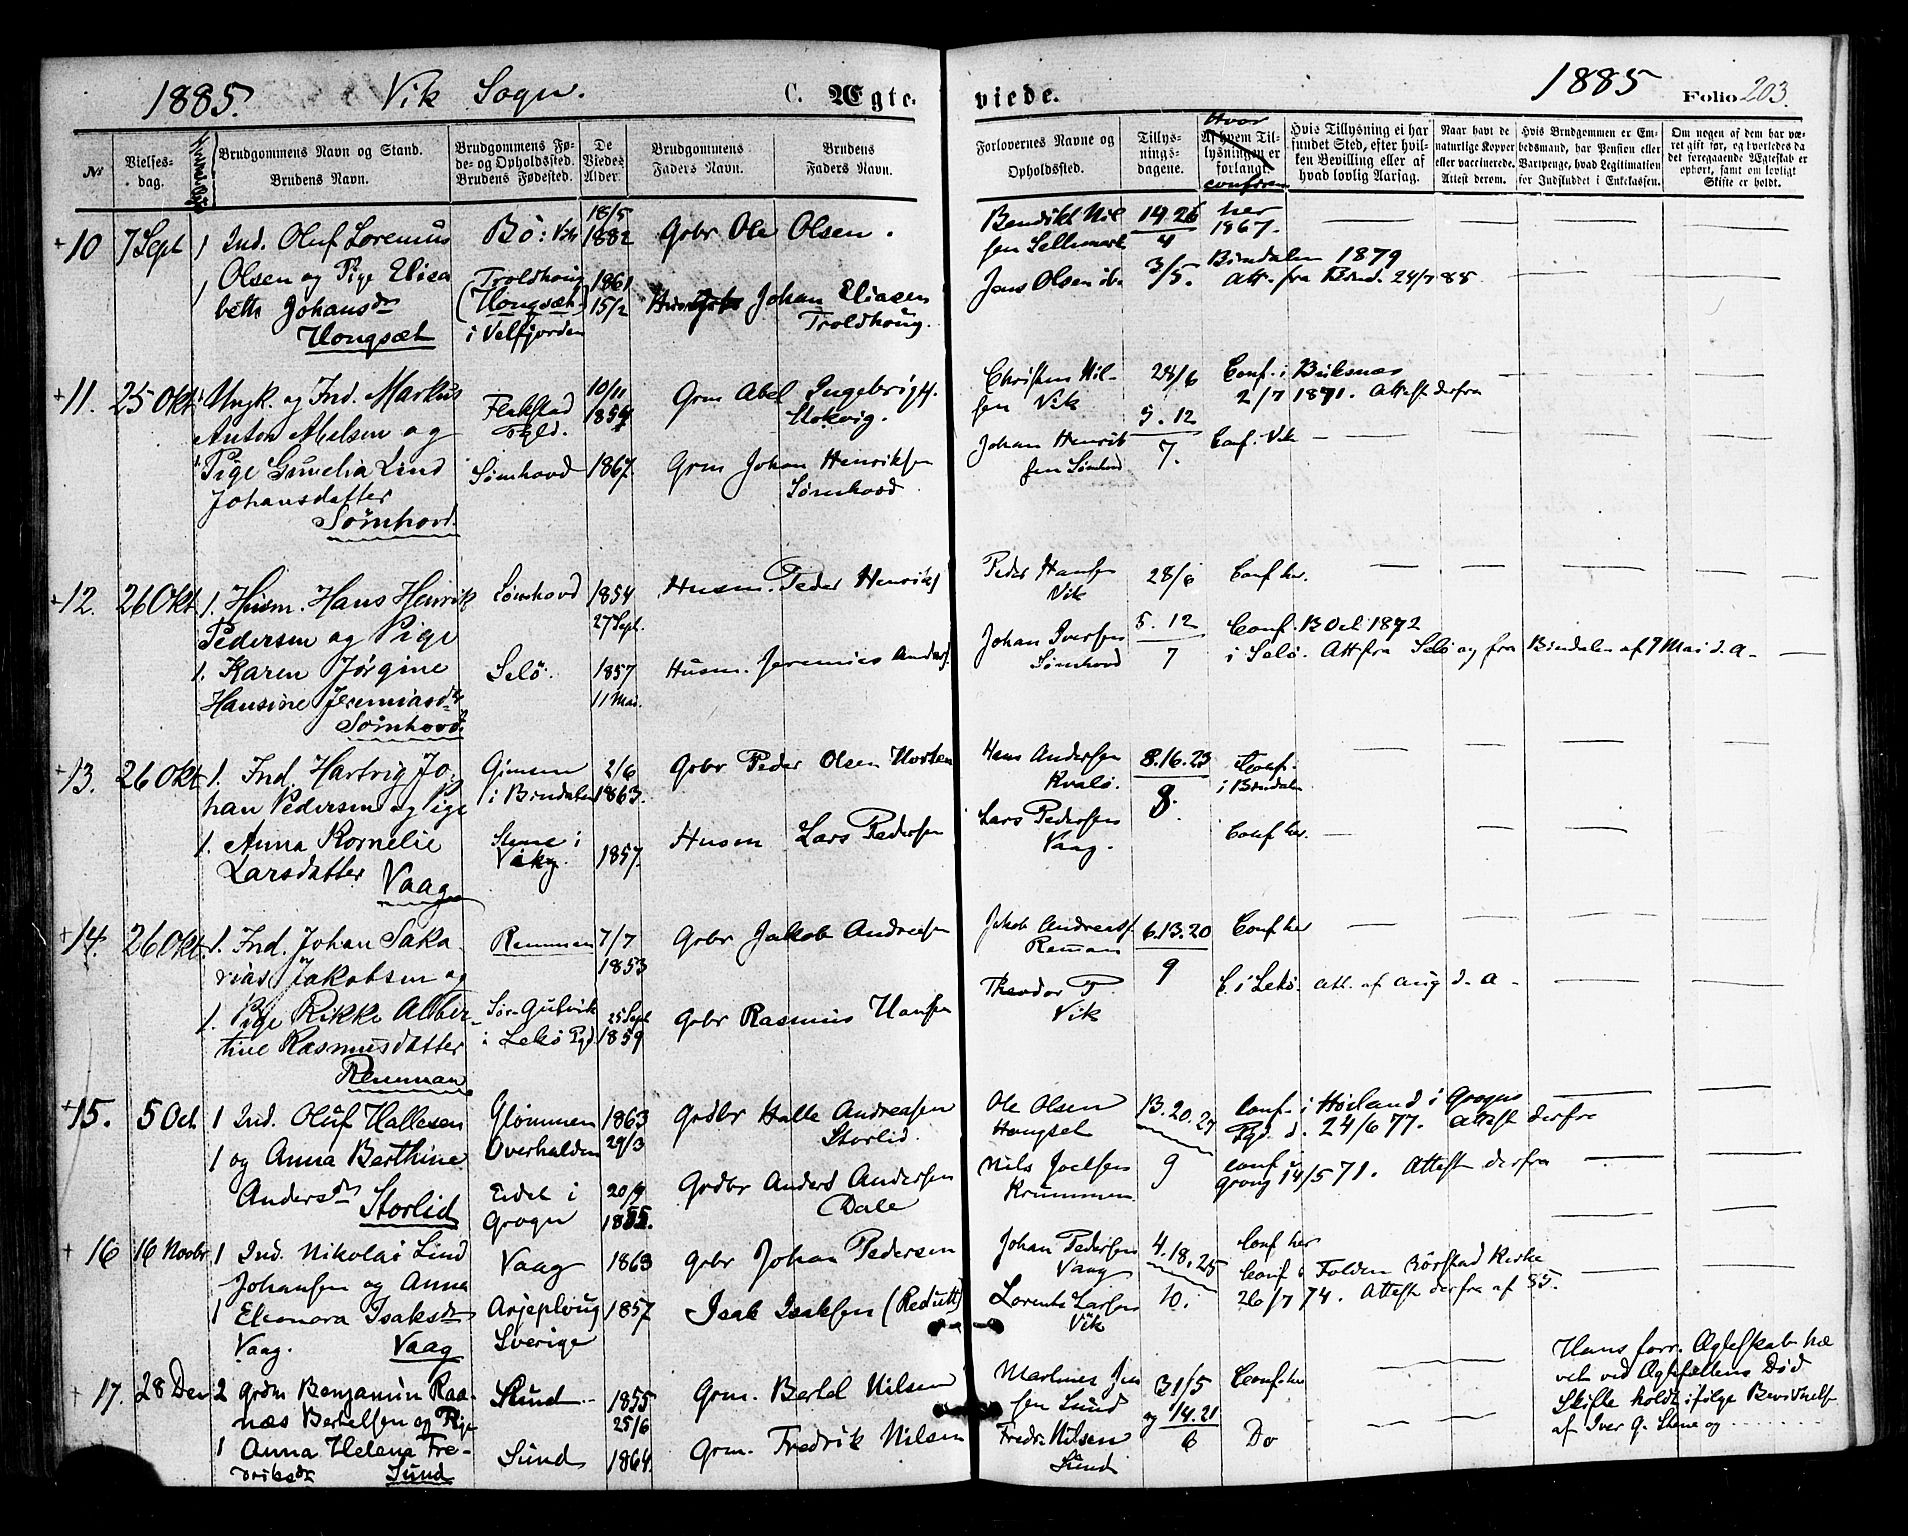 1885. Vik Sogn. C. Ægte-
viede. 1885 Folio 203.
No
Vielses-
dag.
Brudgommens Navn og Stand.
Brudens Navn.
Brudgommens Fø-
de- og Opholdssted.
Brudens Fødested.
De
Viedes
Alder.
Brudgommens
Faders Navn.
Brudens
Faders Navn.
Forlovernes Navne og
Opholdssted.
Tillys-
nings-
dagene.
Hvor
Af hvem Til-
lysningen er
forlangt.
confirm
Hvis Tillysning ei har
fundet Sted, efter hvil-
ken Bevilling eller af
hvad lovlig Aarsag.
Naar havt de
naturlige Kopper
eller vaccinerede.
Attest derom.
Hvis Brudgommen er Em-
bedsmand, har Pension eller
Vartpenge, hvad Legitimation
for Indskuddet i Enkekassen.
Om nogen af dem har væ-
ret gift før, og hvorledes da
det foregaaende Ægteskab er
ophørt, samt om lovligt
Skifte er holdt.
+ 10 7 Sept
1 Ind. Oluf Loremus
Olsen og Pige Elisa
1 beth Johansdr
Hongsæt
Bø: Vik
Troldhoug
(Hongsæt)
i Velfjorden
18/5
1882
1861
15/2
Gbr Ole Olsen.
Johan Eliasen
Troldhoug.
Bendikt Nil
sen Sellmark
Jens Olsen ib.
19. 26
4
3/5.
her
1867.
Bindalen 1879
Att. fra Bind. 24/7 85
+ 11. 25 Okt
1 Ungk. og Ind. Markus
Anton Abelsen og
1 Pige Gunelia Lind
Johansdatter
Sømhovd.
Flakstad
Pgld.
Sømhovd
10/11
1854
1867.
Grm Abel Ingebrigts.
Stokvig.
Grm Johan Henriksen
Sømhovd.
Christen Nil-
sen Vik
Johan Henrik
sen Sømhovd
28/6
5. 12
7.
Conf. i Buksnæs
2/7 1871. Attest derfra
Conf. Vik
+ 12. 26 Okt
1. Husm. Hans Henrik
Pedersen og Pige
1. Karen Jørgine
Hansine Jeremiasdr
Sømhovd.
Sømhovd
Selø.
1854
27 Sept.
1857
11 Mai.
Husm. Peder Henriks
Husm. Jeremias Anders.
Peder Hansen
Vik
Johan Iversen
Sømhovd
28/6
5. 12
7
Conf her.
Conf. B Oct 1872
i Selø. Att fra Selø og fra Bindalen af 7 Mai d. A-
+ 13. 26 Okt
1. Ind. Hartvig Jo-
han Pedersen og Pige
1. Anna Kornelie
Larsdatter Vaag
Gimsen
i Bindalen
Stene i
Vik
2/6
1863.
1857.
Gbr Peder Olsen Horten
Husm Lars Pedersen
Hans Andersen
Kvalø.
Lars Pedersen
Vaag.
8. 16. 23
8.
Conf.
i Bindal
Conf her.
+ 14. 26 Okt
1. Ind. Johan Saka-
rias Jakobsen og
1. Pige Rikke Alber-
tine Rasmusdatter
Remman
Remmen
Sør-Gutvik
i Lekø Pgd
7/7
1853
25 Sept
1859
Gbr Jakob Andreasen
Gbr Rasmus Hansen
Jakob Andreass.
Remman
Theodor P.
Vik
6. 13. 20
9
Conf her
C. i Lekø. Att. af Aug d. A-
+ 15. 5 Oct
1 Ind. Oluf Hallesen
1 og Anna Berthine
Andersdr Storlid
Glømmen
Overhalden
Eidet i
Grogn
1863
29/3
20/9
1855.
Grdbr Halle Andreasen
Storlid.
Grdbr Anders Andersen
Dale
Ole Olsen
Hongset
Nils Joelsen
Krummen
13. 20. 27
9
Conf. i Høiland i Grogns
Pgd. d. 24/6 77. Attest derfra
Conf i
Grong 14/5 71. Attest derfra
+ 16 16 Novbr
1 Ind. Nikolai Lind
Johansen og Anna
1 Eleonora Isaksdr
Vaag. Vaag
Vaag
Arjeploug
Sverige
1863
1857
Gbr Johan Pedersen
Isak Isaksen (Redutt)
Johan Pedersen
Vaag
Lorents Larsen
Vik
4. 18. 25
10.
Conf her
Conf i Folden Rörstad Kirke
26/7 74. Attest derfra af 85.
+ 17. 28 Dec
2 Grdm Benjamin Raa-
næs Bertelsen og Pige
1 Anna Helena Fre-
driksdr Sund
Sund
Sund
1855
25/6
1864.
Grm. Bertel Nilsen
Grm. Fredrik Nilsen
Martines Jen
sen Sund
Fredr. Nilsen
Sund
31/5
og 14. 21
6
Conf her
Do
Hans forr. Ægteskab hæ
vet ved Ægtefællens Død
Skifte holdt ifølge Bevidnelse
af Iver G. Stene og